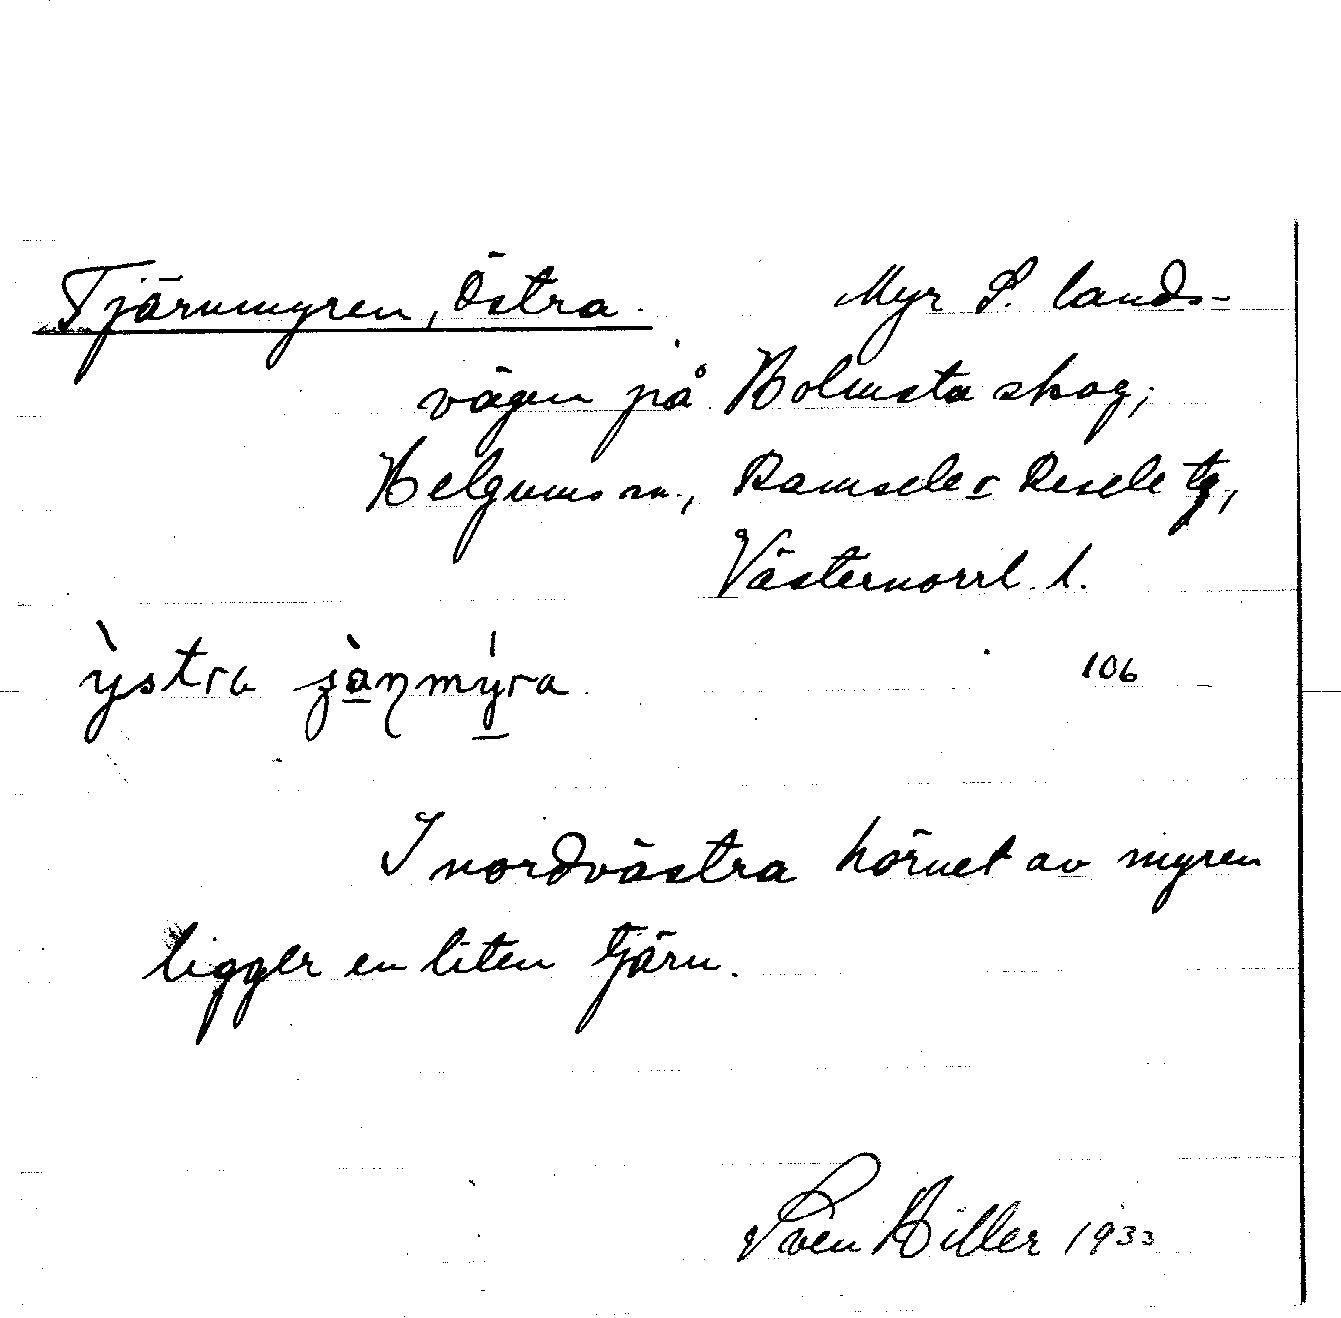 Tjärnmyren, Östra. Myr S. lands-
vägen på Holmsta skog,
Helgums sn., Ramsele o Resele tg,
Västernorrl. l.
ỳstra jànmýra 106
I nordvästra hörnet av myren
ligger en liten tjärn.
Sven Hiller 1933